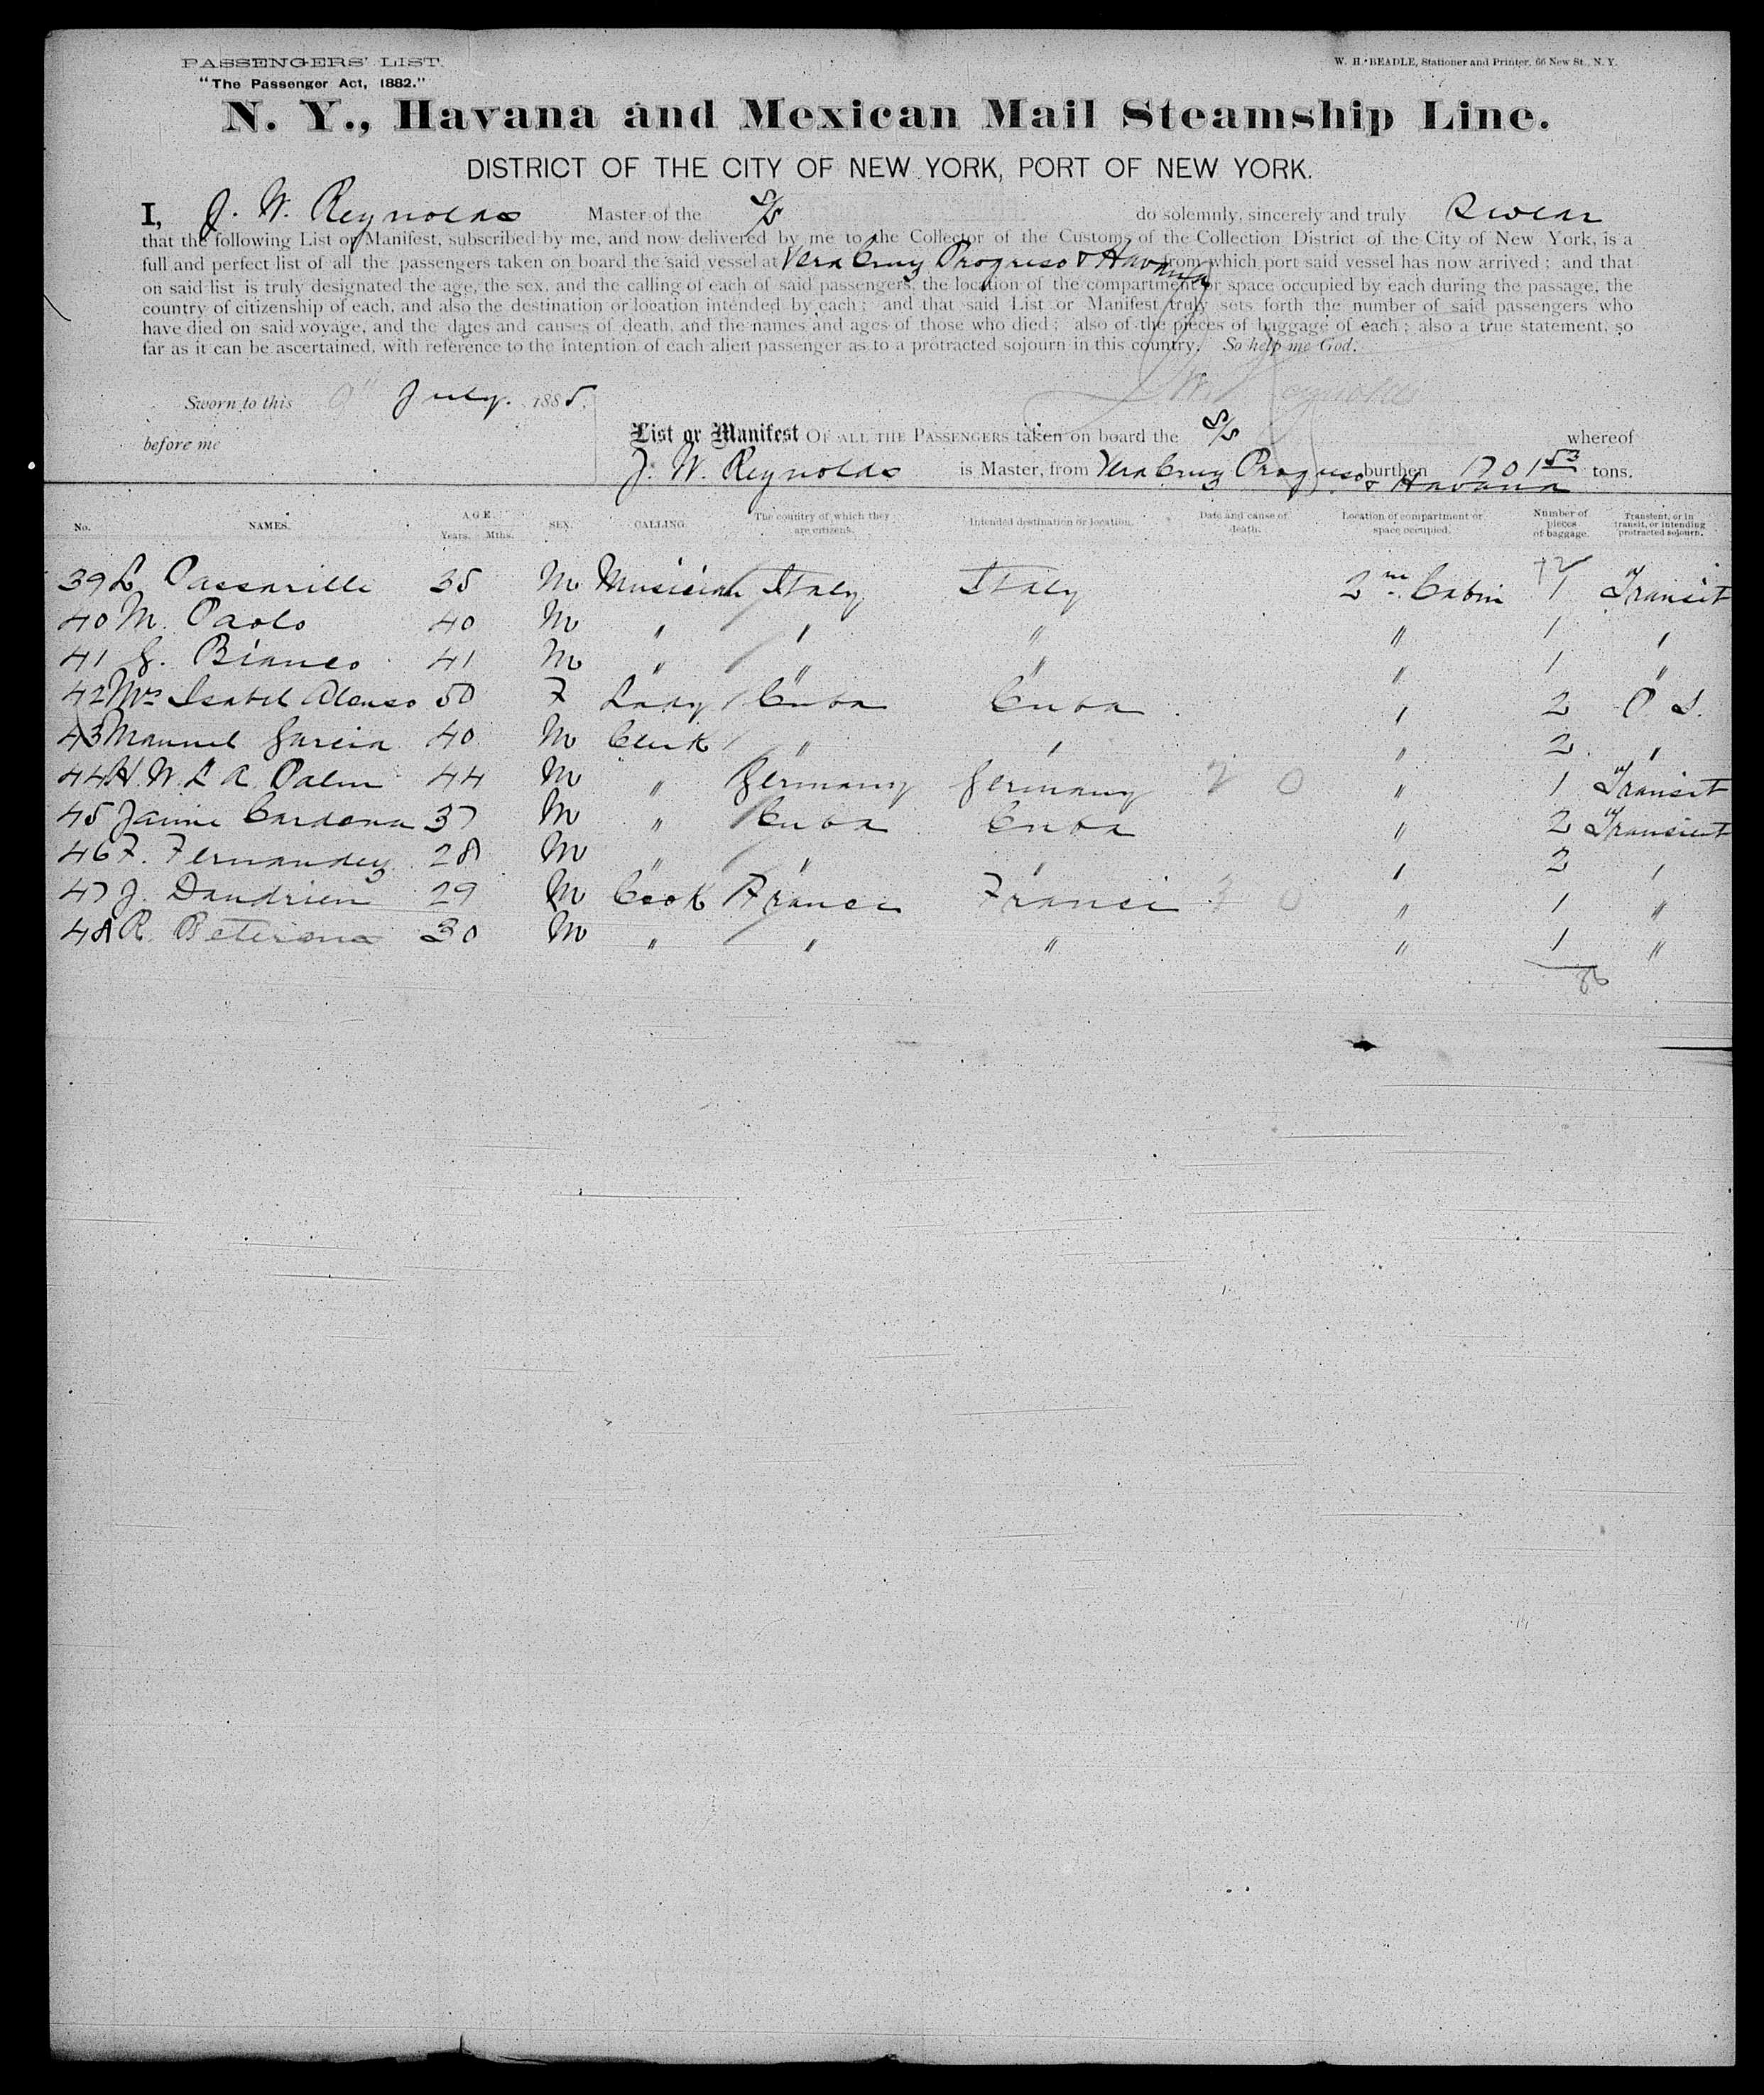 PASSENGERS' LIST.
W. H. BEADLE, Stationer and Printer, 66 New St., N. Y.
"The Passenger Act, 1882."
N. Y., Havana and Mexican Mail Steamship Line.
DISTRICT OF THE CITY OF NEW YORK, PORT OF NEW YORK.
I, J. W. Reynolds Master of the S/S do solemnly, sincerely and truly Swear
that the following List or Manifest, subscribed by me, and now delivered by me to the Collector of the Customs of the Collection District of the City of New York, is a
full and perfect list of all the passengers taken on board the said vessel at Vera Cruz Progreso & Havana from which port said vessel has now arrived; and that
on said list is truly designated the age, the sex, and the calling of each of said passengers, the location of the compartment or space occupied by each during the passage, the
country of citizenship of each, and also the destination or location intended by each; and that said List or Manifest truly sets forth the number of said passengers who
have died on said voyage, and the dates and causes of death, and the names and ages of those who died; also of the pieces of baggage of each; also a true statement, so
far as it can be ascertained, with reference to the intention of each alien passenger as to a protracted sojourn in this country. So help me God.
J. W. Reynolds
Sworn to this 9" July. 1885.
before me
List or Manifest OF ALL THE PASSENGERS taken on board the S/S whereof
J. W. Reynolds is Master, from Vera Cruz Progreso & Havana burthen 1701 53 tons.
No. NAMES. AGE. Years. Mths. SEX. CALLING. The country of which they are citizens. Intended destination or location. Date and cause of death. Location of compartment or space occupied. Number of pieces of baggage. Transient, or in transit, or intending protracted sojourn.
39 L Passarille 35 M Musician Italy Italy 2nd Cabin 1 Transit
40 M. Paolo 40 M " " " " 1 "
41 G. Bianco 41 M " " " " 1 "
42 Mrs Isabel Alonso 50 F Lady Cuba Cuba " 2 P S.
43 Manuel Garcia 40 M Clerk " " " 2 "
44 H. W. L. A. Palm 44 M " Germany Germany 2 0 " 1 Transit
45 Jaime Cardona 37 M " Cuba Cuba " 2 Transient
46 F. Fernandez 28 M " " " " 2 "
47 J. Dandrien 29 M Cook France France 0 " 1 "
48 R. 30 M " " " " 1 "